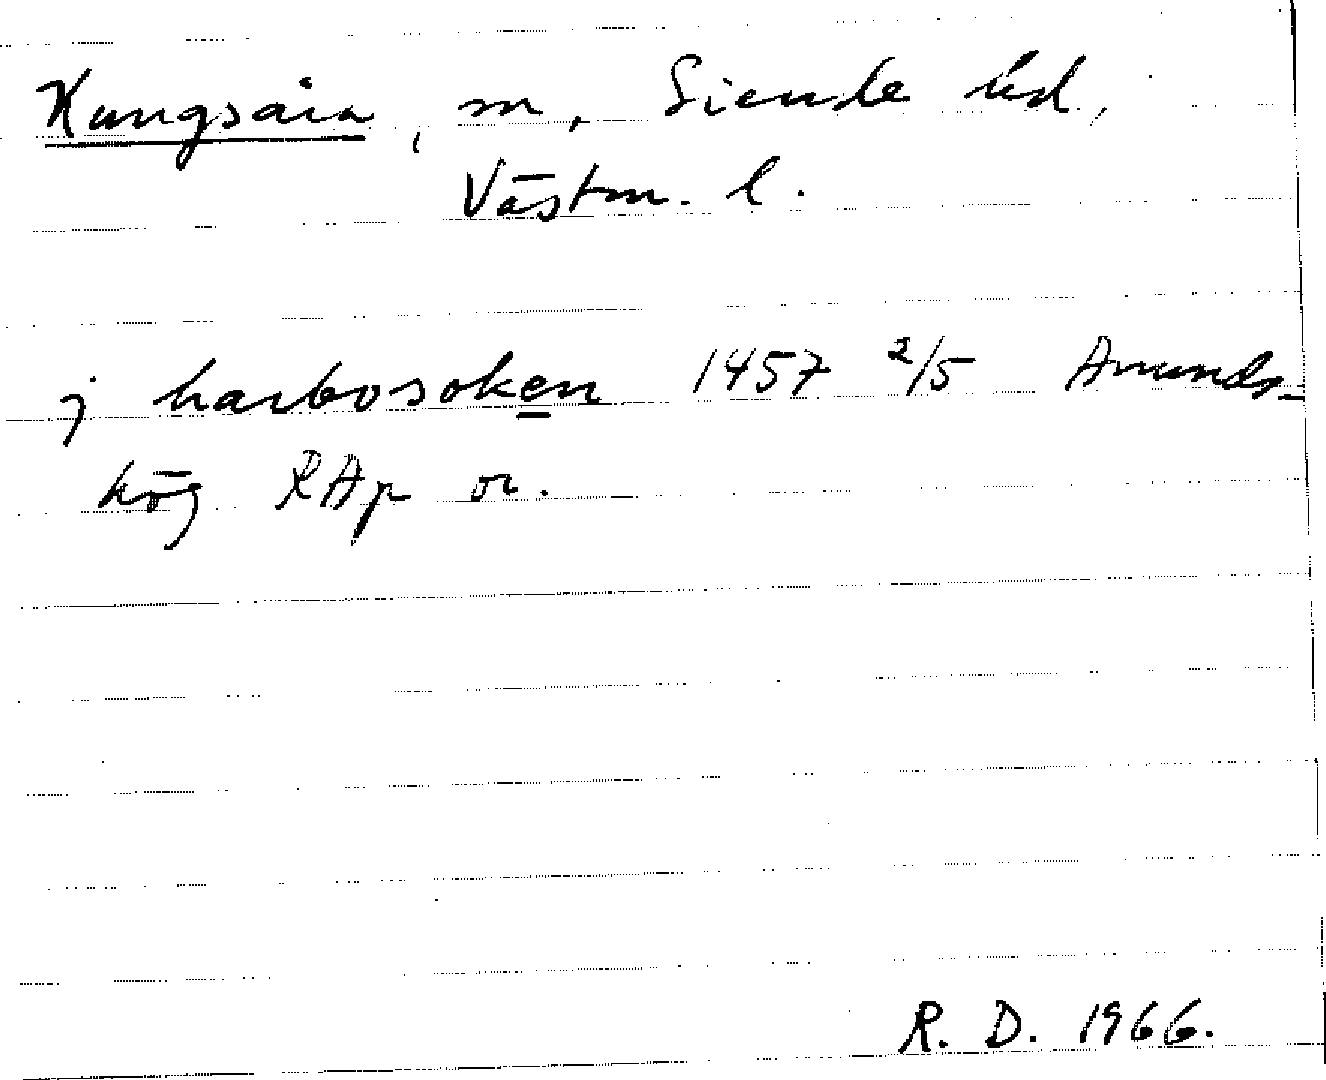 Kungsåra, sn, Siende hd,
Västm. l.
j harbosoken 1457 2/5 Amunds-
hög RAp or.
R. D. 1966.